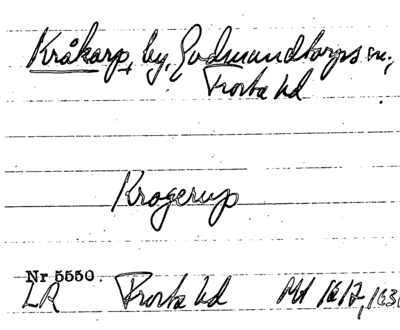 Kråkarp, by, Gudmundtorps sn.,
Frosta hd
Krogerup
Nr 5550.
LR Frosta hd Ml 1612, 1630